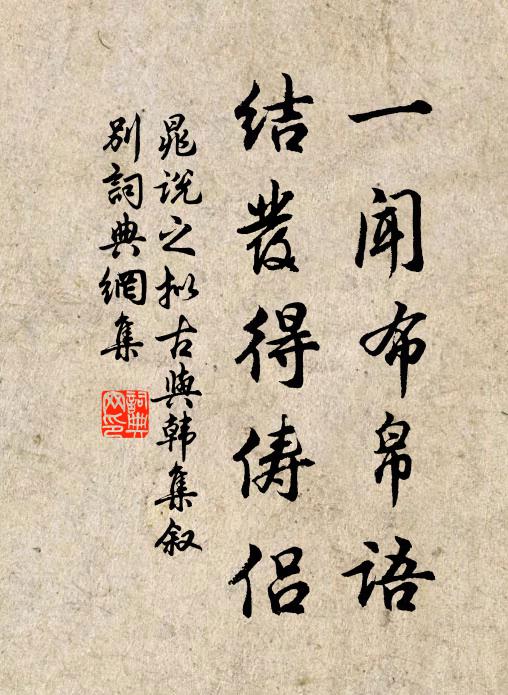 一闻布帛语
结发得俦侣
晁说之拟古与韩集叙
别词典网集
词典网印